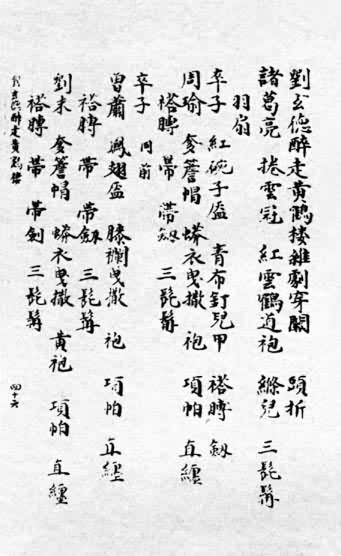 劉玄德醉走黃鶴樓雜劇穿關 頭折
諸葛亮 捲雲冠 紅雲鶴道袍 縧兒 三髭髯
羽扇
卒子 紅碗子盔 青布釘兒甲 褡膊 劔
周瑜 奓簷帽 蟒衣曳撒 袍 項帕 直纏
褡膊 帶 帶劔 三髭髯
卒子 同前
曾蕭 鳳翅盔 膝襴曳撒 袍 項帕 直纏
褡膊 帶 帶劔 三髭髯
劉末 奓簷帽 蟒衣曳撒 黃袍 項帕 直纏
褡膊 帶 帶劍 三髭髯
醉走黃鶴樓
四十六